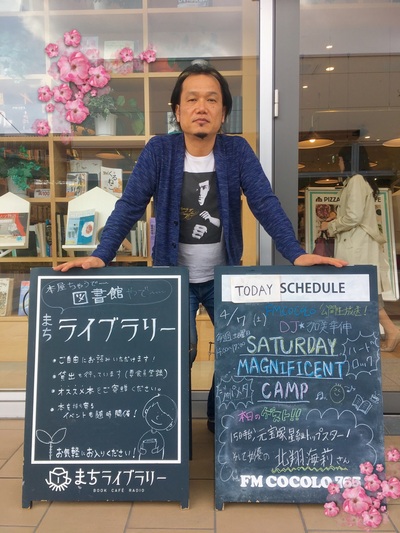 本屋ちゃうで〜
図書館やで
まち
ライブラリー
ご自由にお読みいただけます!
貸出も行っています(要会員登録)
オススメ本をご寄贈ください。
本を持ち寄る
イベントも随時開催!
お気軽にお入りください!
まちライブラリー
BOOK CAFE RADIO
TODAY SCHEDULE
4/7(土)
公開生放送!
DJ★加美幸伸
SATURDAY
MAGNIFICENT
CAMP
ハード
ロック
本日のゲスト
15:00頃〜元宝塚星組トップスター!
そして女優の北翔海莉さん
FM COCOLO 765
PIZZA